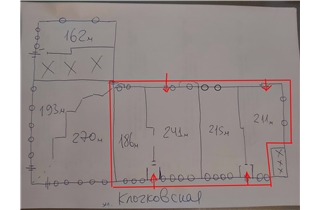 162м
X X X
193м
270м
186м
241м
215м
211м
X X X
ул. Клочковская